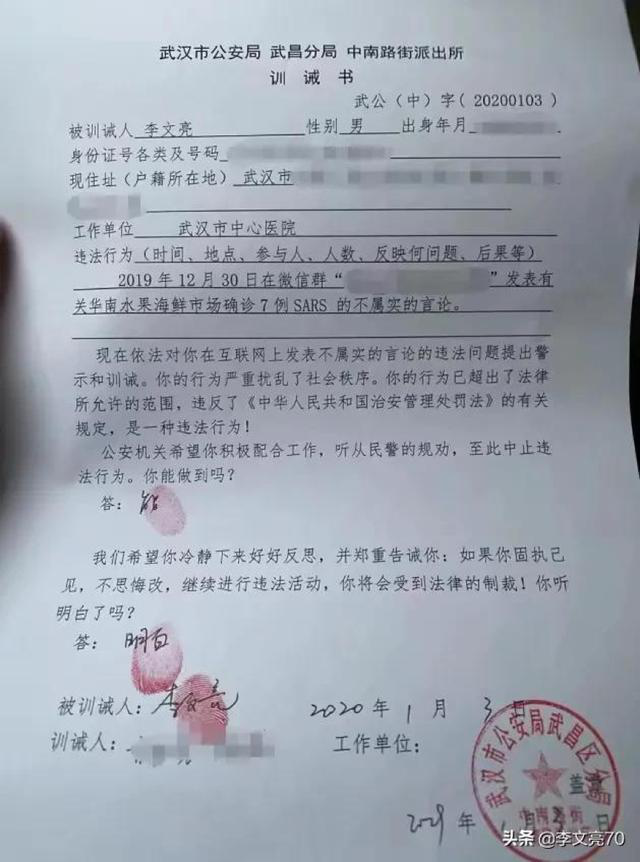 武汉市公安局 武昌分局 中南路街派出所
训 诫 书
武公（中）字( 20200103 )
被训诫人 李文亮 性别 男 出身年月
身份证号各类及号码
现住址(户籍所在地) 武汉市
工作单位 武汉市中心医院
违法行为(时间、地点、参与人、人数、反映何问题、后果等)
2019 年 12 月 30 日在微信群“ ”发表有
关华南水果海鲜市场确诊 7 例 SARS 的不属实的言论。
现在依法对你在互联网上发表不属实的言论的违法问题提出警
示和训诫。你的行为严重扰乱了社会秩序。你的行为已超出了法律
所允许的范围，违反了《中华人民共和国治安管理处罚法》的有关
规定，是一种违法行为！
公安机关希望你积极配合工作，听从民警的规劝，至此中止违
法行为。你能做到吗？
答：能
我们希望你冷静下来好好反思，并郑重告诫你：如果你固执己
见，不思悔改，继续进行违法活动，你将会受到法律的制裁！你听
明白了吗？
答：明白
被训诫人：李文亮 2020 年 1 月 3 日
训诫人： 工作单位：
武汉市公安局武昌区分局
盖章
中南路街
年 月 日
头条 @李文亮70